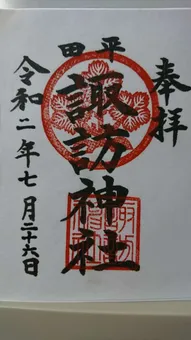 奉拝
平田
諏訪神社
令和二年七月二十六日